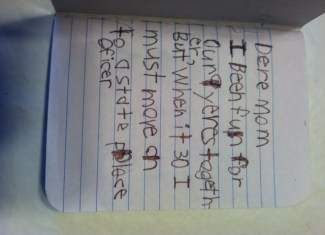 Dere mom
I Been fun for
Our 9 yeres togeth-
er.
But When it 30 I
must move on
to a state polase
oficer